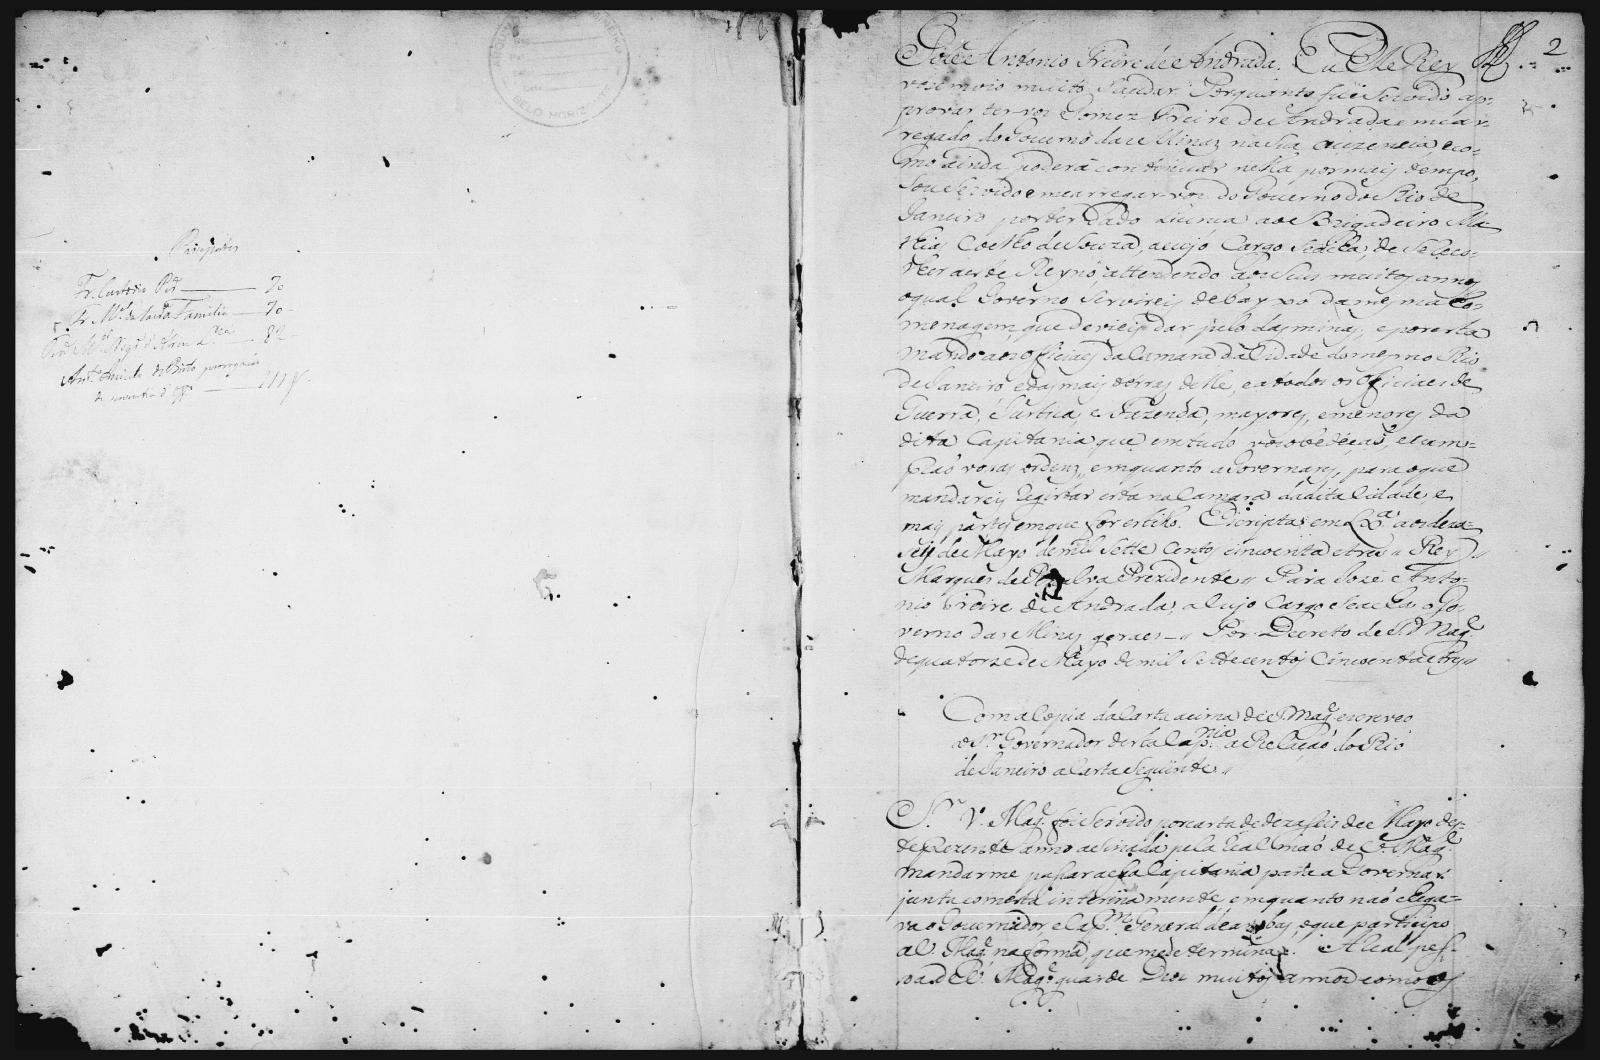 BELO HORIZ
Fr. Custodio Prd 70
Fr. Ml. da Sacrda Familia 70
82
Antto
2
Joze Antonio Freire de Andrada. Eu El Rey
vos envio muito Saudar. Porquanto fui Servido ap-
provar ter-vos Gomez Freire de Andrada emcar-
regado do Governo das Minas na Sua auzencia, eco-
mo ainda poderá continuar nella por mais tempo,
Sou Servido emcarregar-vos do Governo do Rio de
Janeiro por ter dado Licença ao Brigadeiro Ma-
thias Coelho de Souza, a cujo Cargo Se acha, de Se reco-
lher a este Reyno, attendendo aos Seus muitos annos
o qual Governo Servireis debayxo da mesma Ho-
menagem, que devieis dar pelo das minas, e por esta
mando aos officiaes da Camara da Cidade do mesmo Rio
de Janeiro e das mais terras delle, e a todos os officiaes de
Guerra, Justiça, e Fazenda, mayores, e menores da
dita Capitania que em tudo vos obedeçaõ, e cum-
praõ vosas ordens, emquanto a Governares, para o que
mandareis Registar esta na Camara da dita Cidade, e
mais partes em que for estilo. Escripta em Lxa. a os deza-
seis de Mayo de mil Sette Centos cincoenta e tres // Rey //
Marques de Penalva Prezidente // Para Joze Anto-
nio Freire de Andrada, a Cujo Cargo Se acha o Go-
verno das Minas geraes // Por Decreto de S. Mage.
de quatorze de Mayo de mil Settecentos Cincoenta e tres //
Com a Copia da Carta acima de S. Mage. escreveo
o Sr. Governador desta Capnia. a Relaçaõ do Rio
de Janeiro a Carta Seguinte //
Sr. V. Mage. foi Servido por carta de dezaseis de Mayo des-
te Prezente anno asinada pela Real maõ de V. Mage.
mandarme pasar a esa Capitania para a Governar
junta com esta interinamente, emquanto naõ chega-
va o Governador e Capm. General de ambas, o que participo
a V. Mage. na forma, que me determina. A Real pes-
soa de V. Mage. guarde Deos muitos annos como os